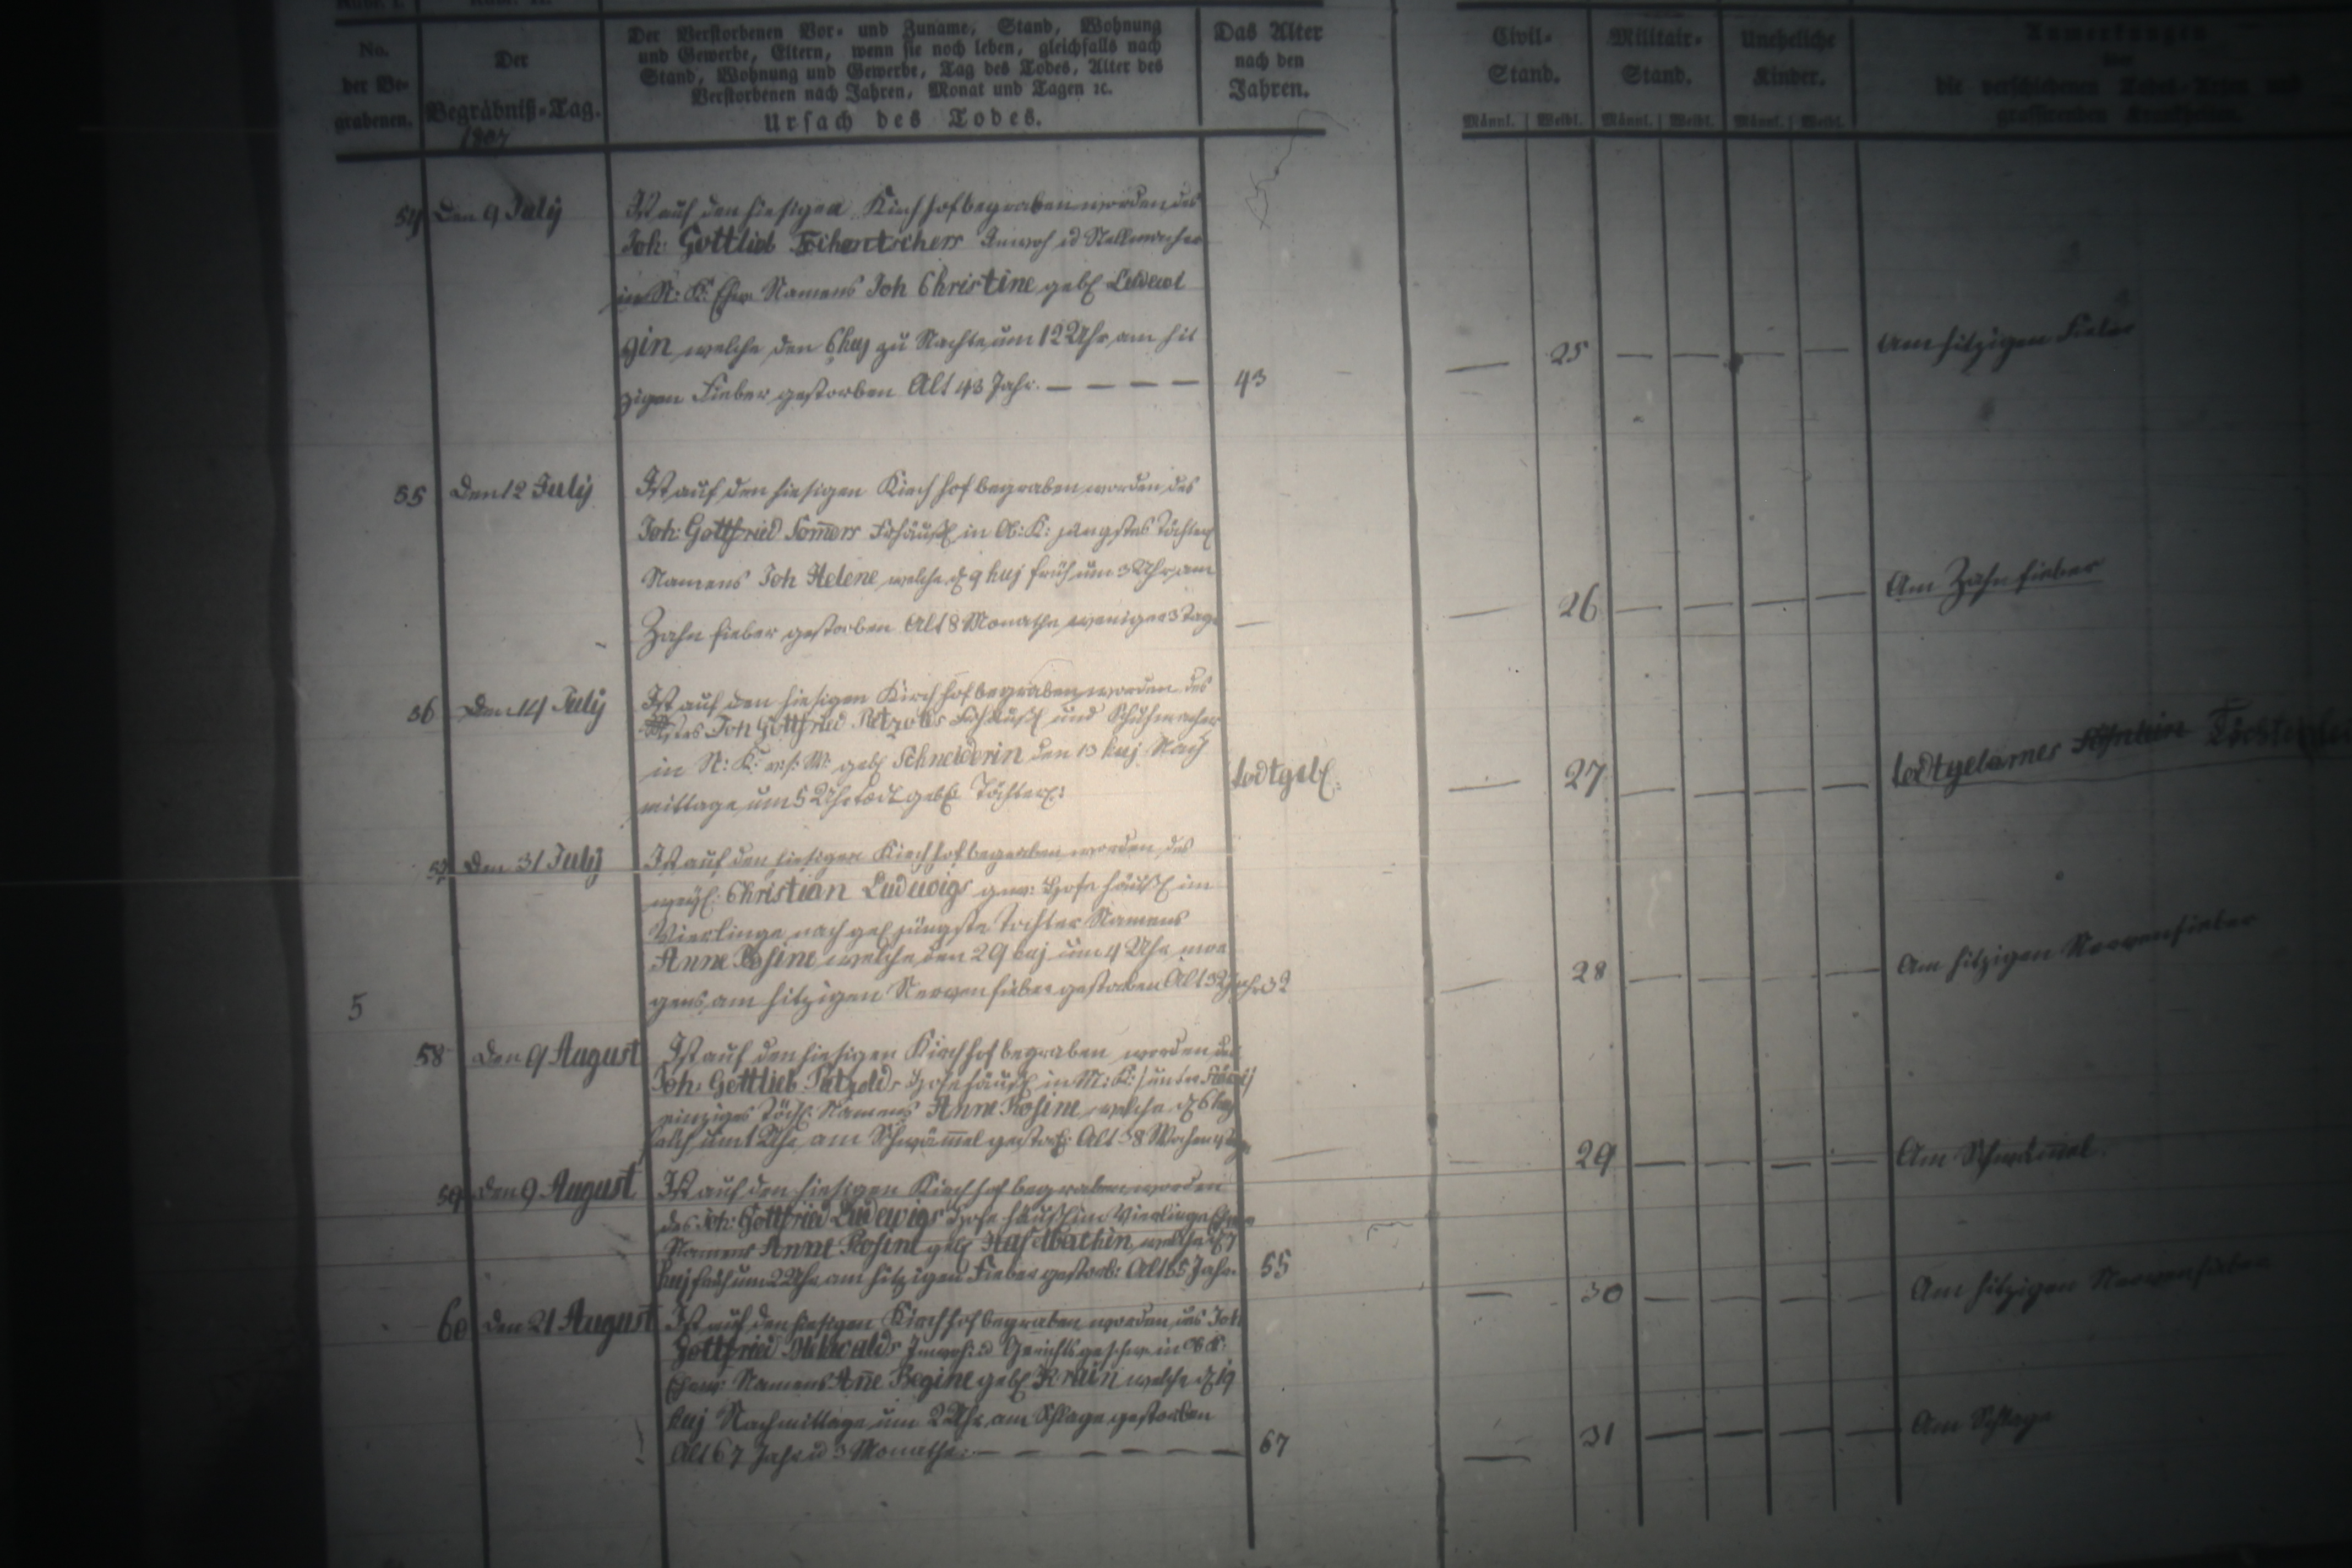 No.
der Be-
grabenen.
Der
Begräbniß-Tag.
1807
Der Verstorbenen Vor- und Zuname, Stand, Wohnung
und Gewerbe, Eltern, wenn sie noch leben, gleichfalls nach
Stand, Wohnung und Gewerbe, Tag des Todes, Alter des
Verstorbenen nach Jahren, Monat und Tagen ꝛc.
Ursach des Todes.
Das Alter
nach den
Jahren.
Civil-
Stand.
Militair-
Stand.
Uneheliche
Kinder.
Anmerkungen
die verschiedenen Todes-Arten und
grassirenden Krankheiten.
Männl. Weibl. Männl. Weibl. Männl. Weibl.
54 Den 9 July
Ist auf den hiesigen Kirchhof begraben worden des
Joh: Gottlieb Inwoh ud Stellmacher
in N: K: Namens Joh Christine geb
gin welche den 6 huj zu Nachts um 12 Uhr am hit
zigen Fieber gestorben Alt 43 Jahr.
43
25
Am hitzigen Fieber
55 Den 12 July
Ist auf den hiesigen Kirchhof begraben worden des
Joh: Gottfried Somers in Ob: K: jüngstes Töchterl
Namens Joh Helene welche d 9 huj früh um 3 Uhr am
Zahnfieber gestorben Alt 8 Monathe weniger 3 Tage
26
Am Zahnfieber
56 Den 14 July
Ist auf den hiesigen Kirchhof begraben worden des
Joh Gottfried und Schuhmacher
in N: K: geb Schneiderin den 13 huj Nach
mittage um 5 Uhr todt geb Töchterl:
todtgeb:
27
todtgebornes Töchterlein
57 Den 31 July
Ist auf den hiesigen Kirchhof begraben worden des
weyl: Christian Ludewigs gew: Hofehäußl im
Vierlinge nach gel jüngste Tochter Namens
Anne Rosine welche den 29 huj um 4 Uhr mor
gens am hitzigen Nervenfieber gestorben Alt 32 Jahr
32
28
Am hitzigen Nervenfieber
5
58 Den 9 August
Ist auf den hiesigen Kirchhof begraben worden des
Joh: Gottlieb Hofehäußl in M: K:
einziges Töchl: Namens Anne Rosine welche d 6 huj
früh um 1 Uhr am Schwämmel gestorb: Alt 38 Wochen
29
Am Schwämmel
59 Den 9 August
Ist auf den hiesigen Kirchhof begraben worden
des Joh: Gottfried Ludewigs Hofehäußl im Vierlinge
Namens Anne Rosine geb welche d 7
huj früh um 2 Uhr am hitzigen Fieber gestorb: Alt 55 Jahr.
55
30
Am hitzigen Nervenfieber
60 Den 21 August
Ist auf den hiesigen Kirchhof begraben worden des Joh
Gottfried Inwoh: ud Gerichtsgeschw in Ob K:
Namens Anne Regine geb welche d 19
huj Nachmittage um 2 Uhr am Schlage gestorben
Alt 67 Jahr ud 3 Monathe:
67
31
Am Schlage